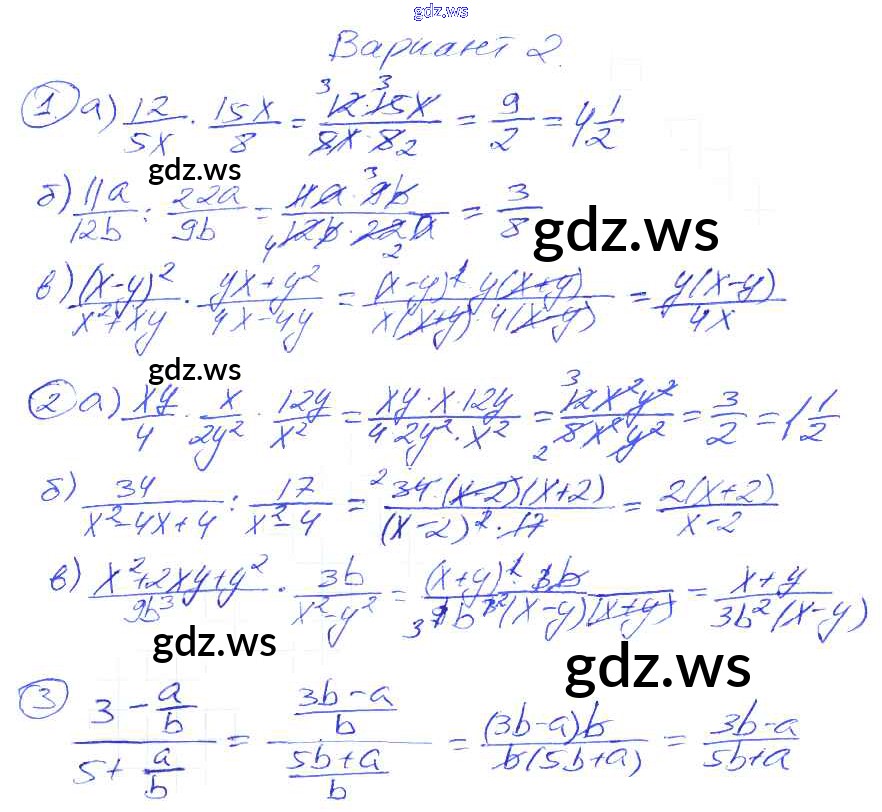 gdz.ws
Вариант 2.
1 а) 12/5x · 15x/8 = 12·15x/8x·8 = 9/2 = 4 1/2
gdz.ws
б) 11a/12b : 22a/9b = 11a·9b/12b·22a = 3/8
gdz.ws
в) (x-y)^2/x^2+xy · yx+y^2/4x-4y = (x-y)^2 y(x+y)/x(x+y)·4(x-y) = y(x-y)/4x
gdz.ws
2 а) xy/4 · x/2y^2 · 12y/x^2 = xy·x·12y/4·2y^2·x^2 = 12x^2y^2/8x^2y^2 = 3/2 = 1 1/2
б) 34/x^2-4x+4 : 17/x^2-4 = 34·(x-2)(x+2)/(x-2)^2·17 = 2(x+2)/x-2
в) x^2+2xy+y^2/9b^3 · 3b/x^2-y^2 = (x+y)^2·3b/9b^3(x-y)(x+y) = x+y/3b^2(x-y)
gdz.ws
gdz.ws
3 3-a/b / 5+a/b = 3b-a/b / 5b+a/b = (3b-a)b/b(5b+a) = 3b-a/5b+a